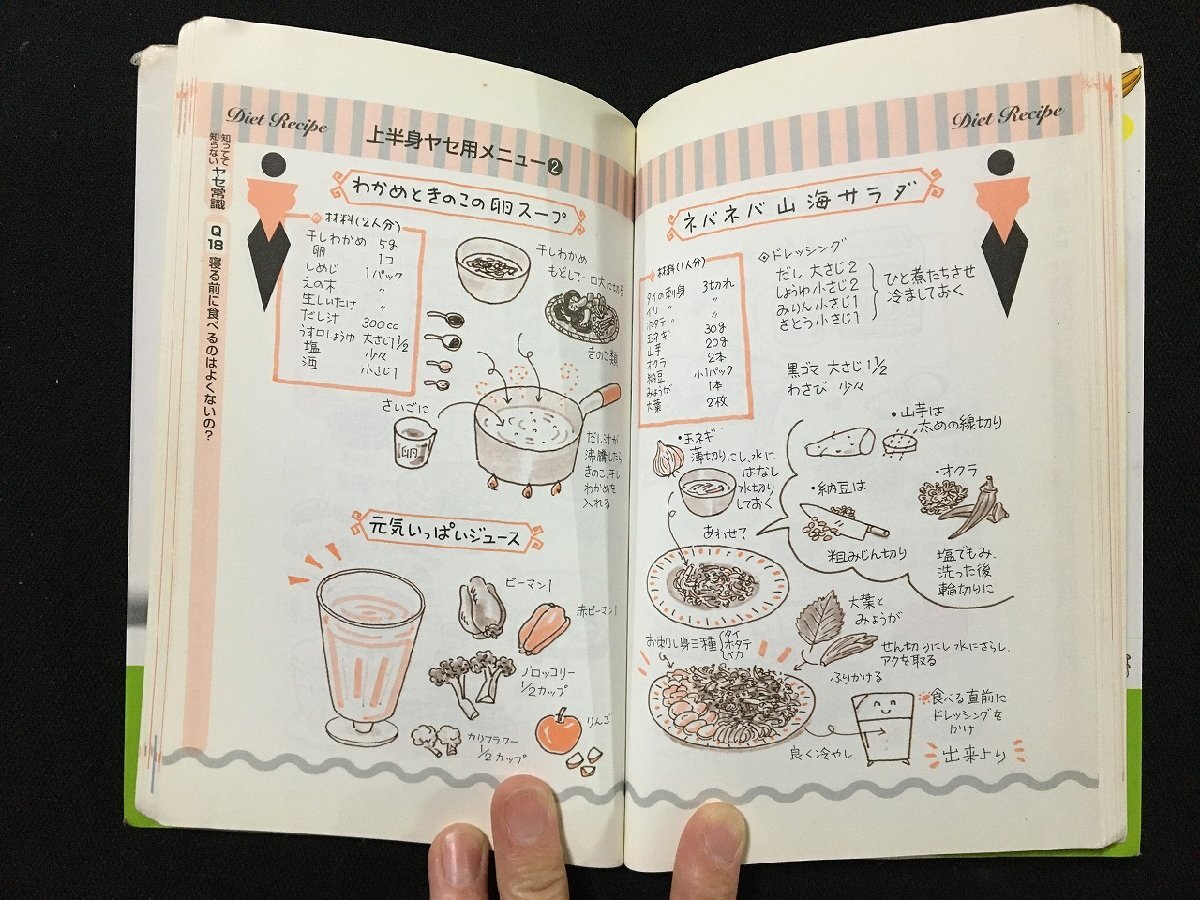 Diet Recipe
上半身ヤセ用メニュー❷
知ってて
知らない
ヤセ常識
Q18 寝る前に食べるのはよくないの?
わかめときのこの卵スープ
材料(2人分)
干しわかめ 5g
卵 1コ
しめじ 1パック
えの木 〃
生しいたけ 〃
だし汁 300cc
うす口しょうゆ 大さじ1 1/2
塩 少々
酒 小さじ1
干しわかめ
もどして一口大に切る
きのこ類
さいごに
卵
だし汁が
沸騰したら
きのこ、干し
わかめを
入れる
元気いっぱいジュース
ピーマン1
赤ピーマン1
ブロッコリー
1/2カップ
りんご
カリフラワー
1/2カップ
Diet Recipe
ネバネバ山海サラダ
材料(1人分)
タイの刺身 3切れ
イカ 〃 〃
ホタテ 〃 〃
玉ネギ 30g
山芋 20g
オクラ 2本
納豆 小1パック
みょうが 1本
大葉 2枚
◎ドレッシング
だし 大さじ2
しょうゆ 小さじ2
みりん 小さじ1
さとう 小さじ1
ひと煮たちさせ
冷ましておく
黒ゴマ 大さじ1 1/2
わさび 少々
・玉ネギ
薄切りにし、水に
はなし
水切り
しておく
・山芋は
太めの線切り
・納豆は
粗みじん切り
・オクラ
塩でもみ、
洗った後
輪切りに
あわせて
大葉と
みょうが
せん切りにし水にさらし、
アクを取る
ふりかける
お刺し身三種
タイ
ホタテ
イカ
良く冷やし
食べる直前に
ドレッシングを
かけ
出来上り